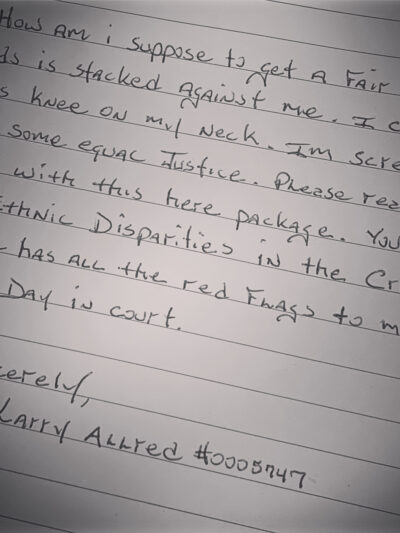 How Am i suppose to get A FAir
is stacked AgAinst me. I
KNee ON my Neck. I'm
some equAL Justice. PLeAse
with this here pAckAge. You
EthNic DispArities iN the
hAs ALL the red FLAgs to
DAy iN court.
LArry ALLred #0005747